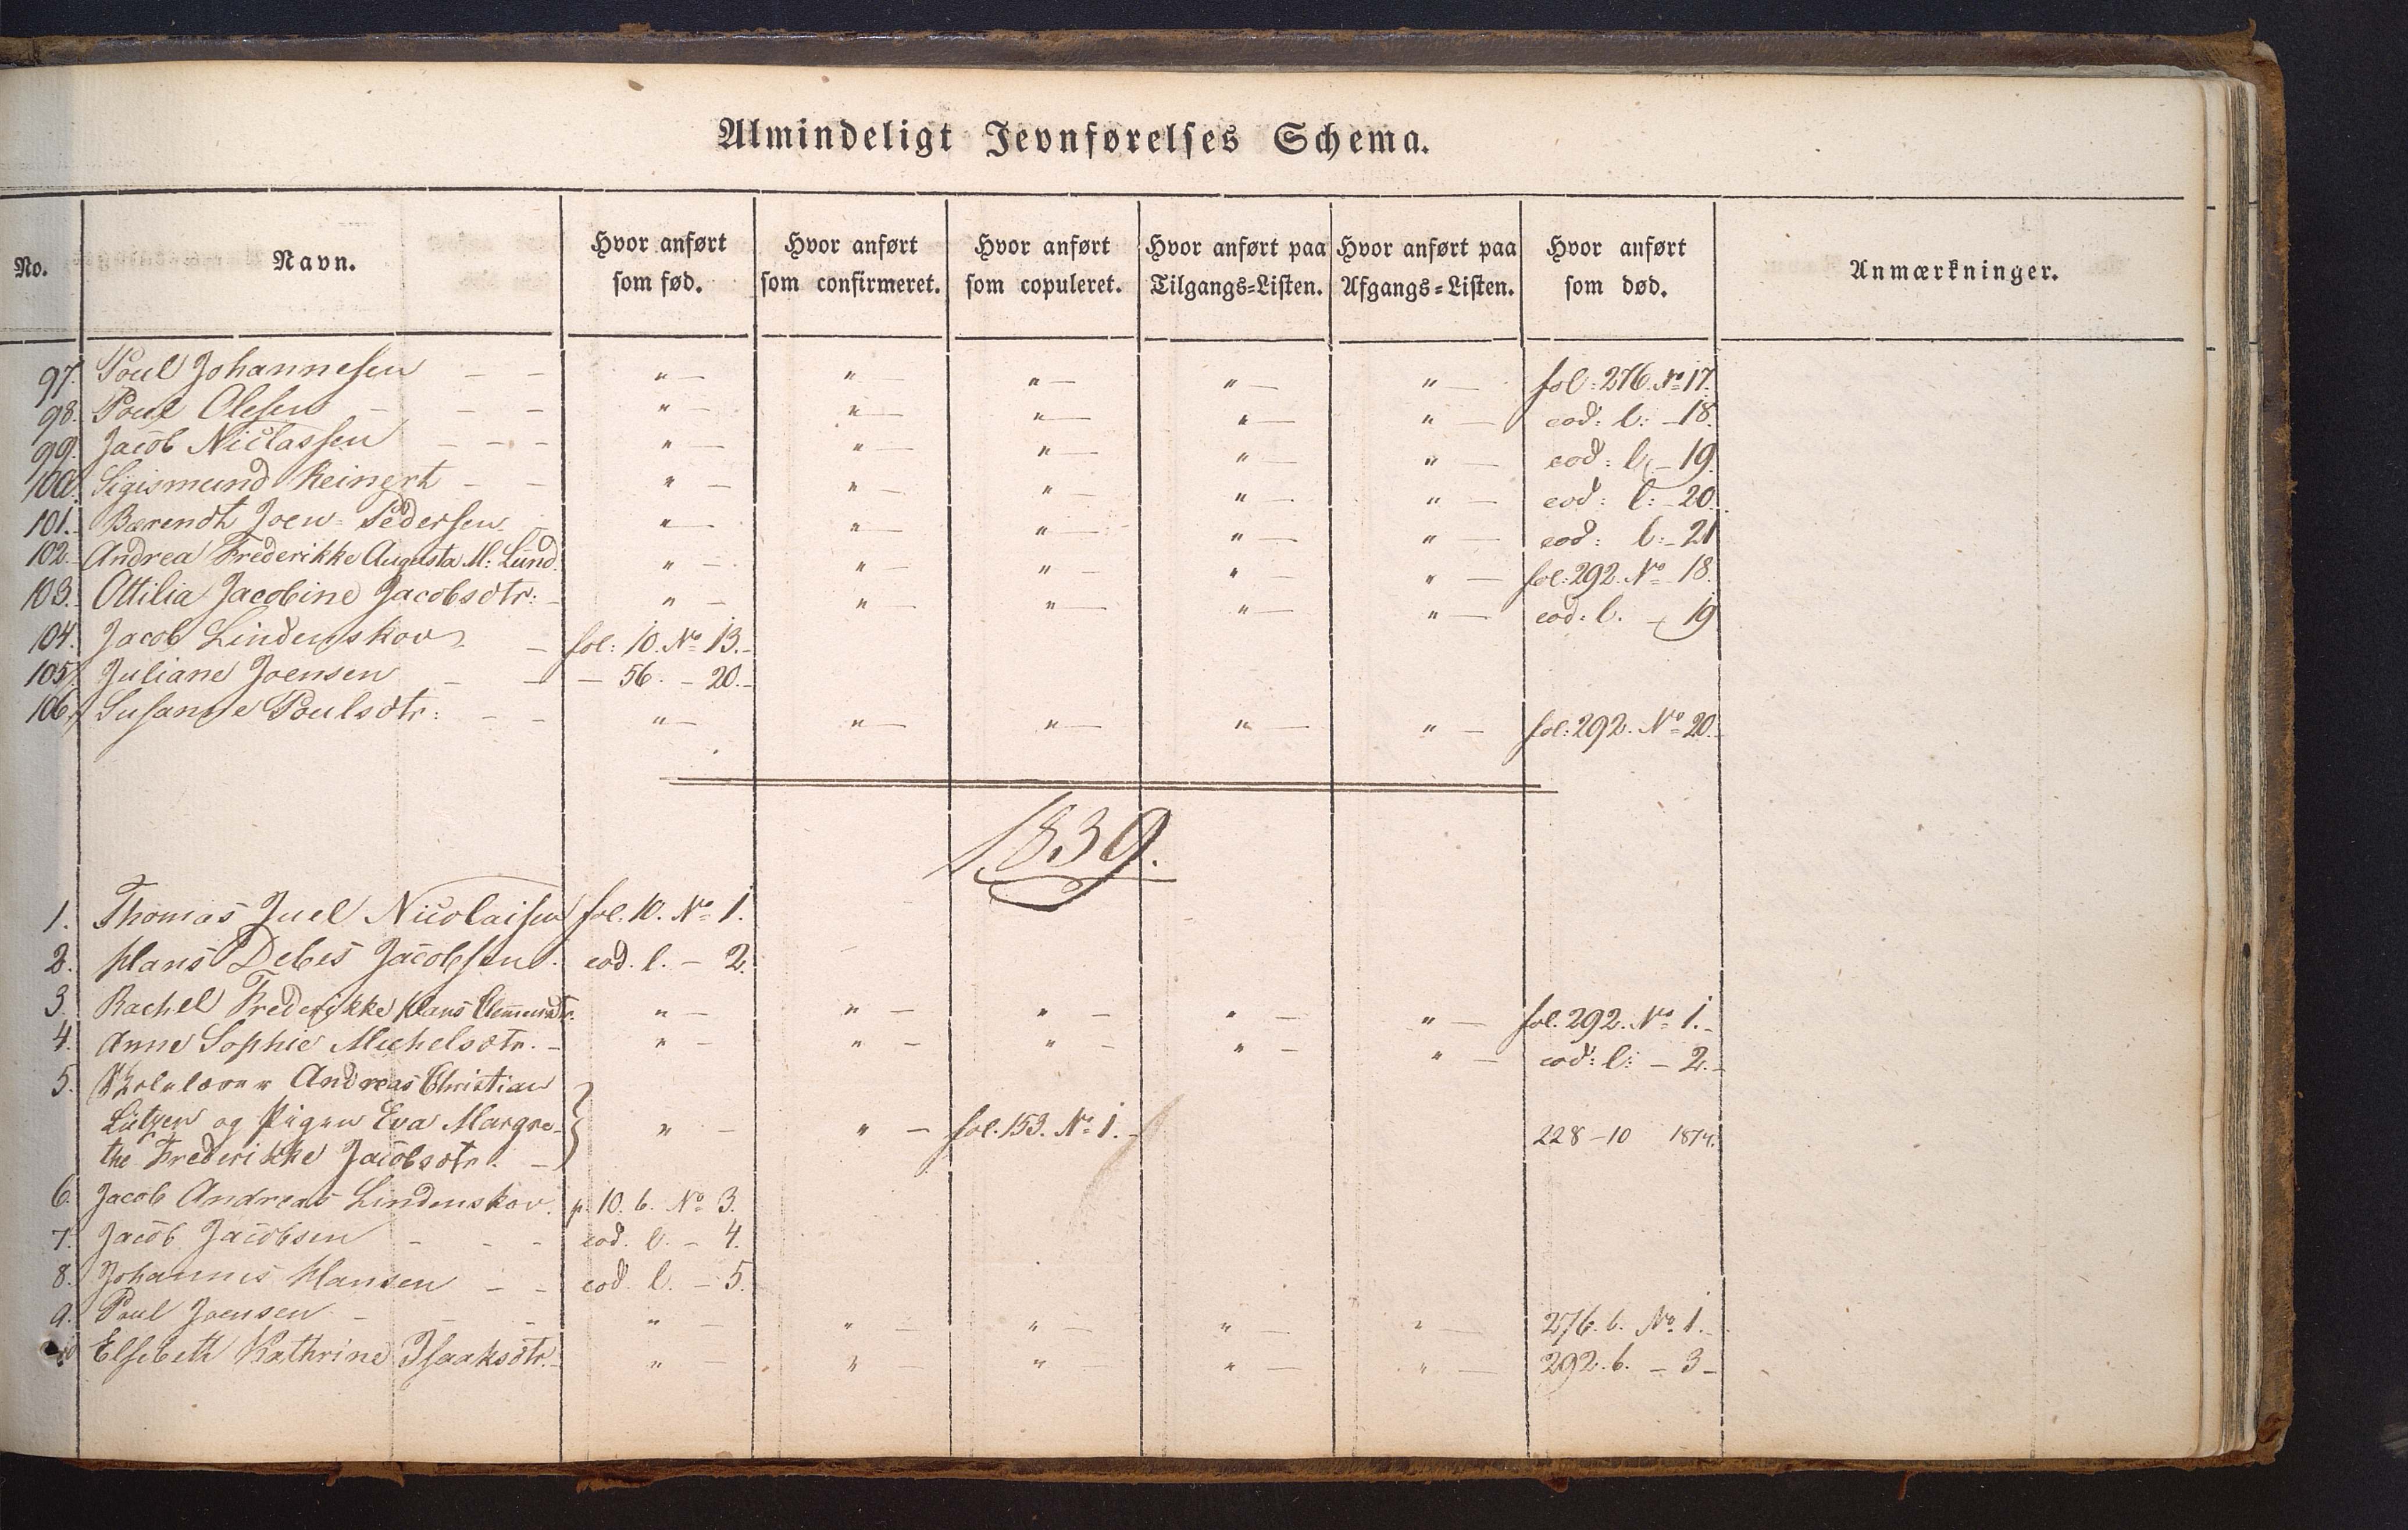 Almindeligt Jevnførelses Schema.
No. Navn. Hvor anført som fød. Hvor anført som confirmeret. Hvor anført som copuleret. Hvor anført paa Tilgangs=Listen. Hvor anført paa Afgangs=Listen. Hvor anført som død. Anmærkninger.
97. Poul Johannesen — — " — " — " — " — " — fol: 276. No 17.
98. Poul Olesen — — — " — " — " — " — " — eod: l: — 18.
99. Jacob Niclassen — — — " — " — " — " — " — eod: l: — 19.
100. Sigismund Reinert — — " — " — " — " — " — eod: l: — 20.
101. Barendt Joen Pedersen — " — " — " — " — " — eod: l: — 21
102. Andrea Frederikke Augusta M: Lund. " — " — " — " — " — fol: 292. No 18.
103. Ottilia Jacobine Jacobsdtr: — " — " — " — " — " — eod: l. — 19
104. Jacob Lindenskov — fol: 10. No 13.
105. Juliane Joensen — — — 56. — 20.
106. Susanne Poulsdtr: — — " — " — " — " — " — fol: 292. No 20.
1839.
1. Thomas Juel Nicolaisen fol. 10. No 1.
2. Hans Debes Jacobsen. eod. l. — 2.
3. Rachel Frederikke Hans Clemmensdtr. " — " — " — " — " — fol. 292. No 1.
4. Anne Sophie Michelsdtr. — " — " — " — " — " — eod: l: — 2.
5. Andreas Christian
Lützen og Pigen Eva Margre-
the Frederikke Jacobsdtr. — " — " — fol. 153. No 1. — 228 — 10 1874.
6. Jacob Andreas Lindenskov. p. 10. b. No 3.
7. Jacob Jacobsen — — — eod. l. — 4.
8. Johannes Hansen — — eod. l. — 5.
9. Poul Joensen — — — " — " — " — " — " — 276. b. No 1.
10 Elsebeth Kathrine Isaaksdtr. — " — " — " — " — " — 292. b. — 3 —